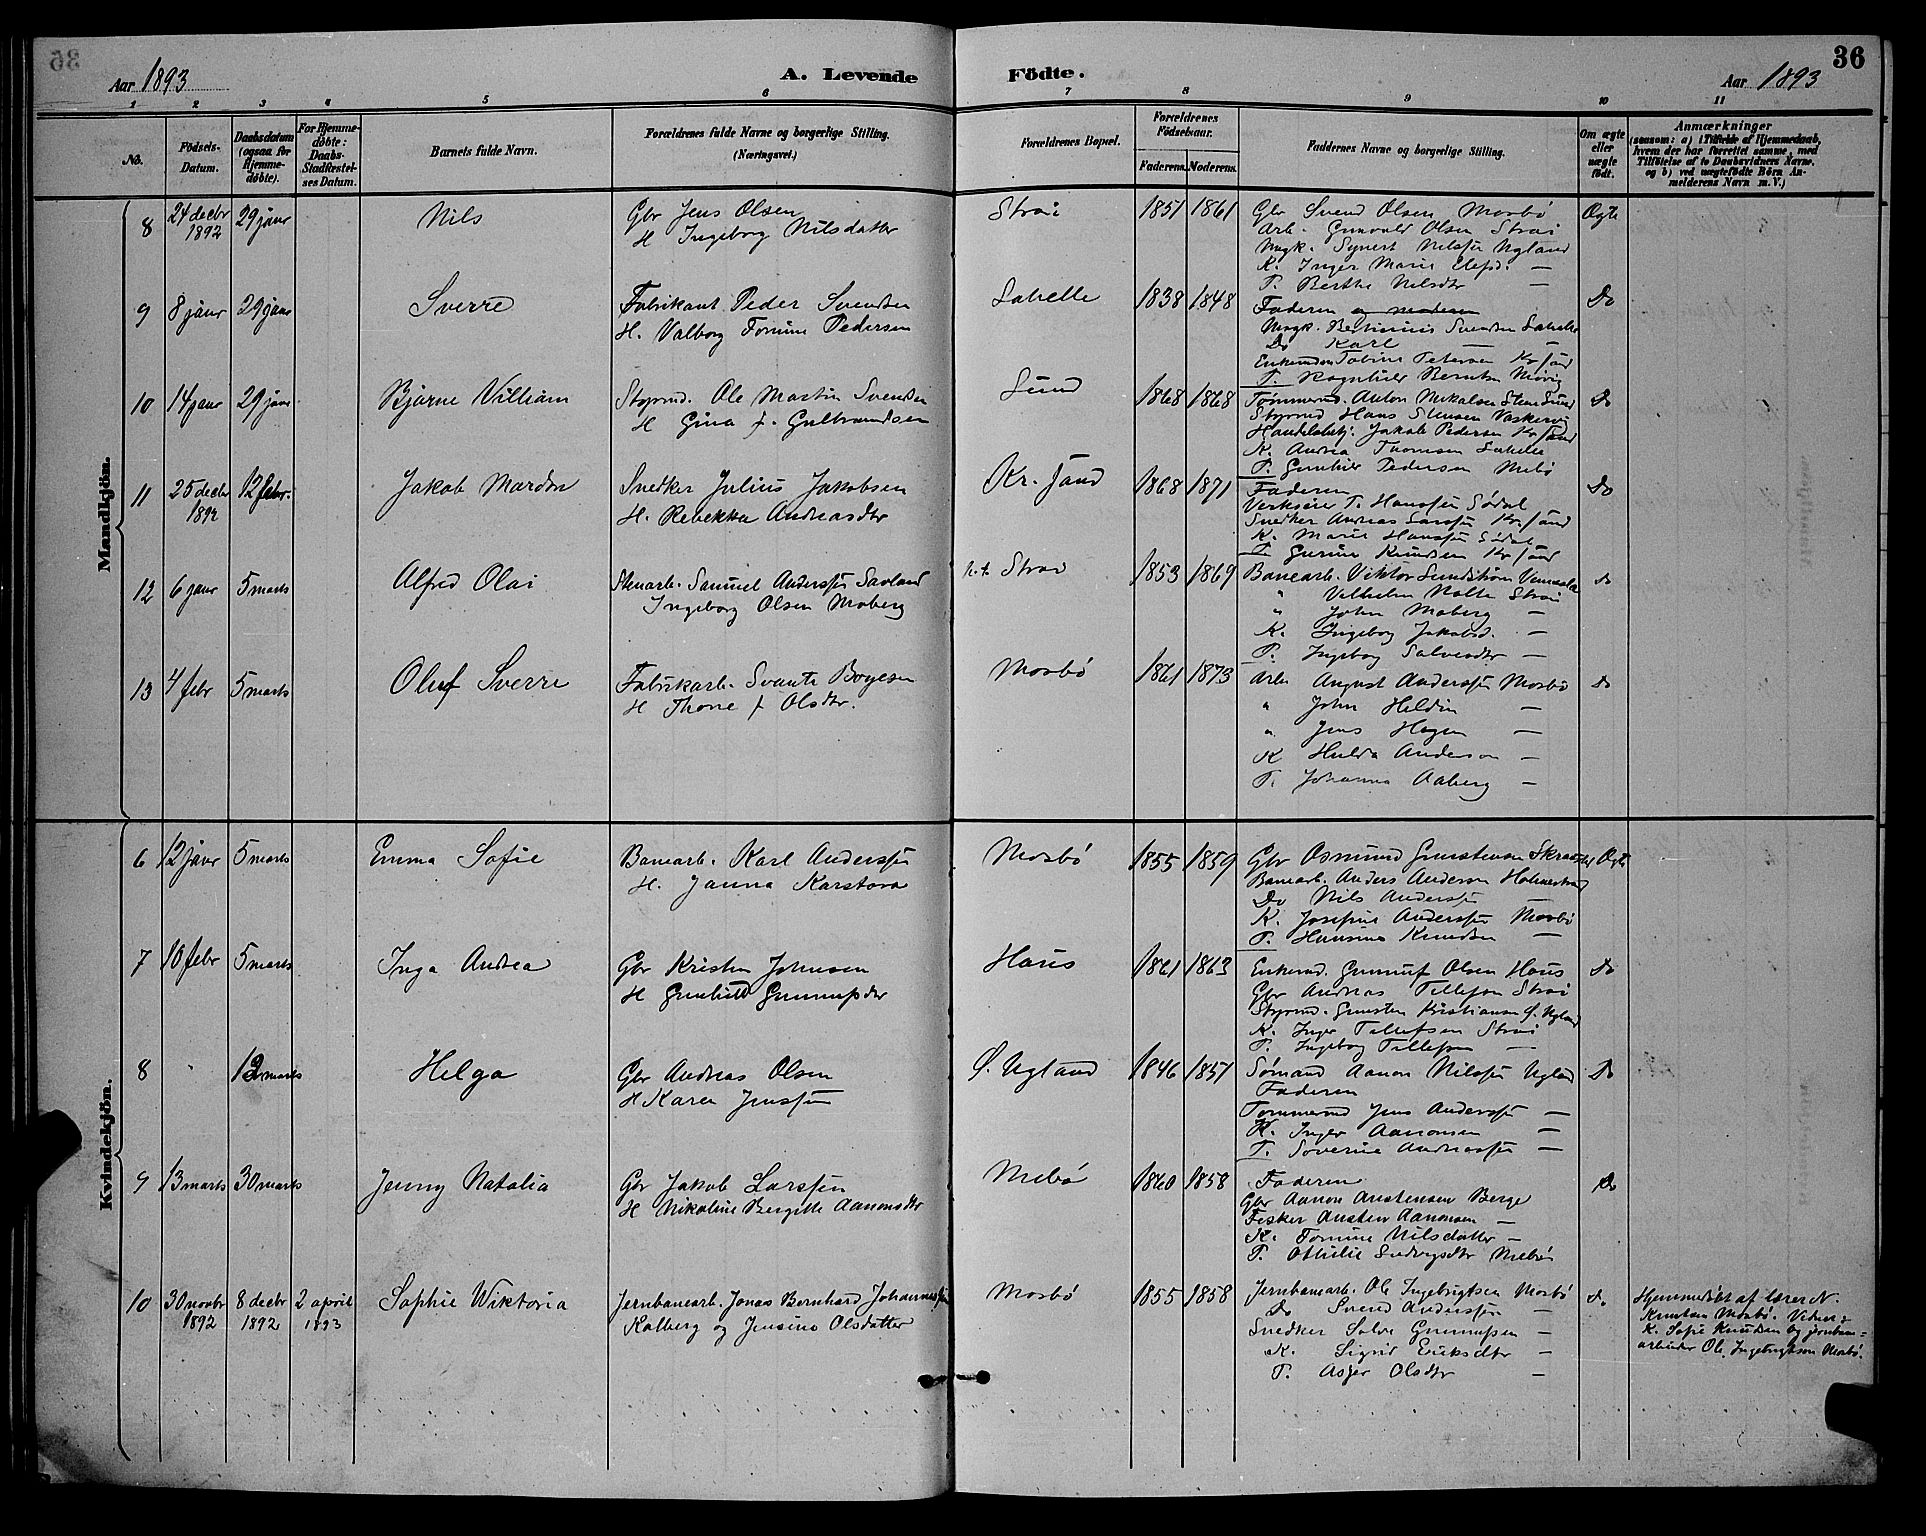 36
Aar 1893
A. Levende Födte.
Aar 1893
1 2 3 4 5 6 7 8 9 10 11
No.
Födsels-Datum.
Daabsdatum (ogsaa for Hjemme-döbte).
For Hjemme-döbte: Daabs-Stadfæstel-ses Datum.
Barnets fulde Navn.
Forældrenes fulde Navne og borgerlige Stilling. (Næringsvei.)
Forældrenes Bopæl.
Forældrenes Födselsaar.
Faderens. Moderens.
Faddernes Navne og borgerlige Stilling.
Om ægte eller uægte födt.
Anmærkninger
(saasom: a) i Tilfælde af Hjemmedaab,
hvem der har forrettet samme, med
Tilföielse af to Daabsvidners Navne,
og b) ved uægtefödte Börn An-
melderens Navn m. V.)
Mandkjön.
8 24 decbr 1892 29 janr Nils
Gbr Jens Olsen
H Ingeborg Nilsdatter
Strai 1851 1861
Gbr Svend Olsen Mosbø
Arb. Gunvald Olsen Strai
Ungk. Syvert Nilssen Ugland
K. Inger Marie —
P. Berthe Nilsdtr —
Ægte
9 8 janr 29 janr Sverre
Fabrikant Peder Svendsen
H. Valborg Tomine Pedersen
1838 1848
Faderen
Ungk. Svendsen
Do Karl — —
Tobine Petersen Kr.sand
P. Berntsen
Do
10 14 janr 29 janr Bjarne Villiam
Styrmd. Ole Martin Svendsen
H Gina f. Gulbrandsen
Sund 1868 1868
Tømmermd. Anton Sund
Styrmd Hans
Jakob Pedersen Kr.sand
K. Andrea Thomsen
P. Gunhild Pedersen Mebø
Do
11 25 decbr 1892 12 febr. Jakob
Snedker Julius Jakobsen
H. Rebekka Andreasdtr
Kr.sand 1868 1871
Faderen
T. Hanssen Sødal
Snedker Andreas Larssen Kr.sand
K. Marie Hanssen Sødal
P. Gurine Knudsen Kr.sand
Do
12 6 janr 5 marts Alfred Olai
Stenarb. Samuel Anderssen
Ingeborg Olsen Moberg
Strai 1853 1869
Banearb. Viktor Sundstrøm
" Vilhelm Strai
" John Moberg —
K. Ingeborg Jakobsd. —
P. Ingeborg Salvesdtr —
Do
13 4 febr 5 marts Oluf Sverre
Fabrikarb. Svante Boyesen
H Thone f Olsdtr.
Mosbø 1861 1873
Arb. August Anderssen Mosbø
" John —
" Jens Hagen —
K Hulda Anderson —
P. Johanna Aaberg —
Do
Kvindekjön.
6 12 janr 5 marts Emma Sofie
Banearb. Karl Anderssen
H. Janna
Mosbø 1855 1859
Gbr Osmund Gunstensen
Banearb. Anders Andersen
Do Nils Anderssen
K. Josefine Anderssen Mosbø
P. Hansine Knudsen —
Ægte
7 10 febr 5 marts Inga Andrea
Gbr Kristen Johnsen
H
Haus 1861 1863
Enkemd. Gunnuf Olsen Haus
Gbr Andreas Tellefsen Strai
Styrmd. Gunsten Kristiansen Ø. Ugland
K. Inger Tellefsen Strai
P. Ingeborg Tellefsen —
Do
8 " 12 marts Helga
Gbr Andreas Olsen
H Karen Jenssen
Ø. Ugland 1846 1857
Sømand Aanon Nilssen Ugland
Faderen
Tømmermd Jens Anderssen —
K. Inger Aanonsen —
P. Severine Andreassen —
Do
9 13 marts 30 marts Jenny Natalia
Gbr Jakob Larssen
H Nikoline Bergitte Aanonsdtr
Mebø 1860 1858
Faderen
Gbr Aanon Austensen Berge
Fisker Austen Aanonsen —
K. Tomine Nilsdatter —
P. Othilie Mebø
Do
10 30 novbr 1892 8 decbr 1892 2 april 1893 Sophie Wiktoria
Jernbanearb. Jonas Bernhard Johannessen
Kalberg og Jensine Olsdatter
Mosbø 1855 1858
Jernbanearb. Ole Ingebrigtsen Mosbø
Do Svend Anderssen —
Snedker Salve Gunnufsen —
K. Sigrid Eriksdtr —
P. Asger Olsdtr —
Do
Hjemmedøbt af lærer N.
Knutsen Mosbø. Vidner:
K. Sofie Knudsen og jernbane-
arbeider Ole Ingebrigtsen Mosbø.